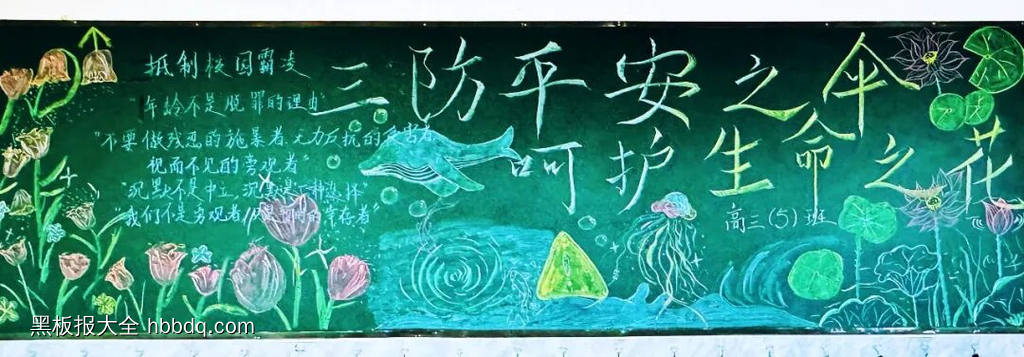 三防平安之伞
呵护生命之花
高三(5)班
抵制校园霸凌
"年龄不是脱罪的理由"
"不要做残忍的施暴者,无力反抗的受害者
视而不见的旁观者"
"沉默不是中立,沉默是一种
"我们不是旁观者,
幸存者"
黑板报大全 hbbdq.com